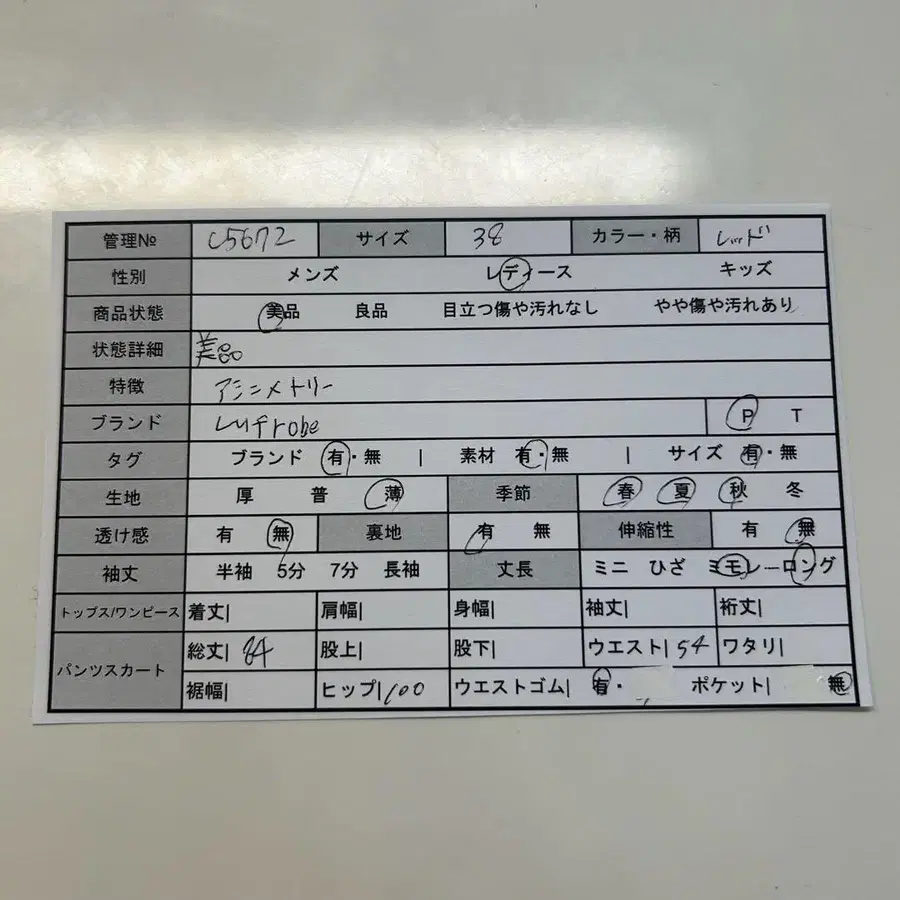 管理№ C5672 サイズ 38 カラー・柄 レッド
性別 メンズ レディース キッズ
商品状態 美品 良品 目立つ傷や汚れなし やや傷や汚れあり
状態詳細 美品
特徴 アシンメトリー
ブランド Lufrobe P T
タグ ブランド 有・無 | 素材 有・無 | サイズ 有・無
生地 厚 普 薄 季節 春 夏 秋 冬
透け感 有 無 裏地 有 無 伸縮性 有 無
袖丈 半袖 5分 7分 長袖 丈長 ミニ ひざ ミモレーロング
トップス/ワンピース 着丈| 肩幅| 身幅| 袖丈| 裄丈|
パンツスカート 総丈| 84 股上| 股下| ウエスト| 54 ワタリ|
裾幅| ヒップ| 100 ウエストゴム| 有・ ポケット| 無